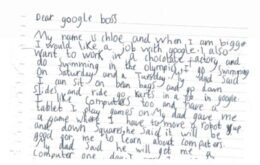 Dear google boss
My name is Chloe and when I am bigger
I would like a job with google. I also
want to work in a chocolate factory and
do swimming in the olympics. I go swimming
on Saturday and a Tuesday. My dad said
I can sit on bean bags and go down
slides and ride go karts in a job in google.
I like computers too and have a
tablet I play games on. My dad gave me
a game where I have to move a robot up
and down squares, he said it will be
good for me to learn about computers.
My dad said he will got me a
Computer one day.